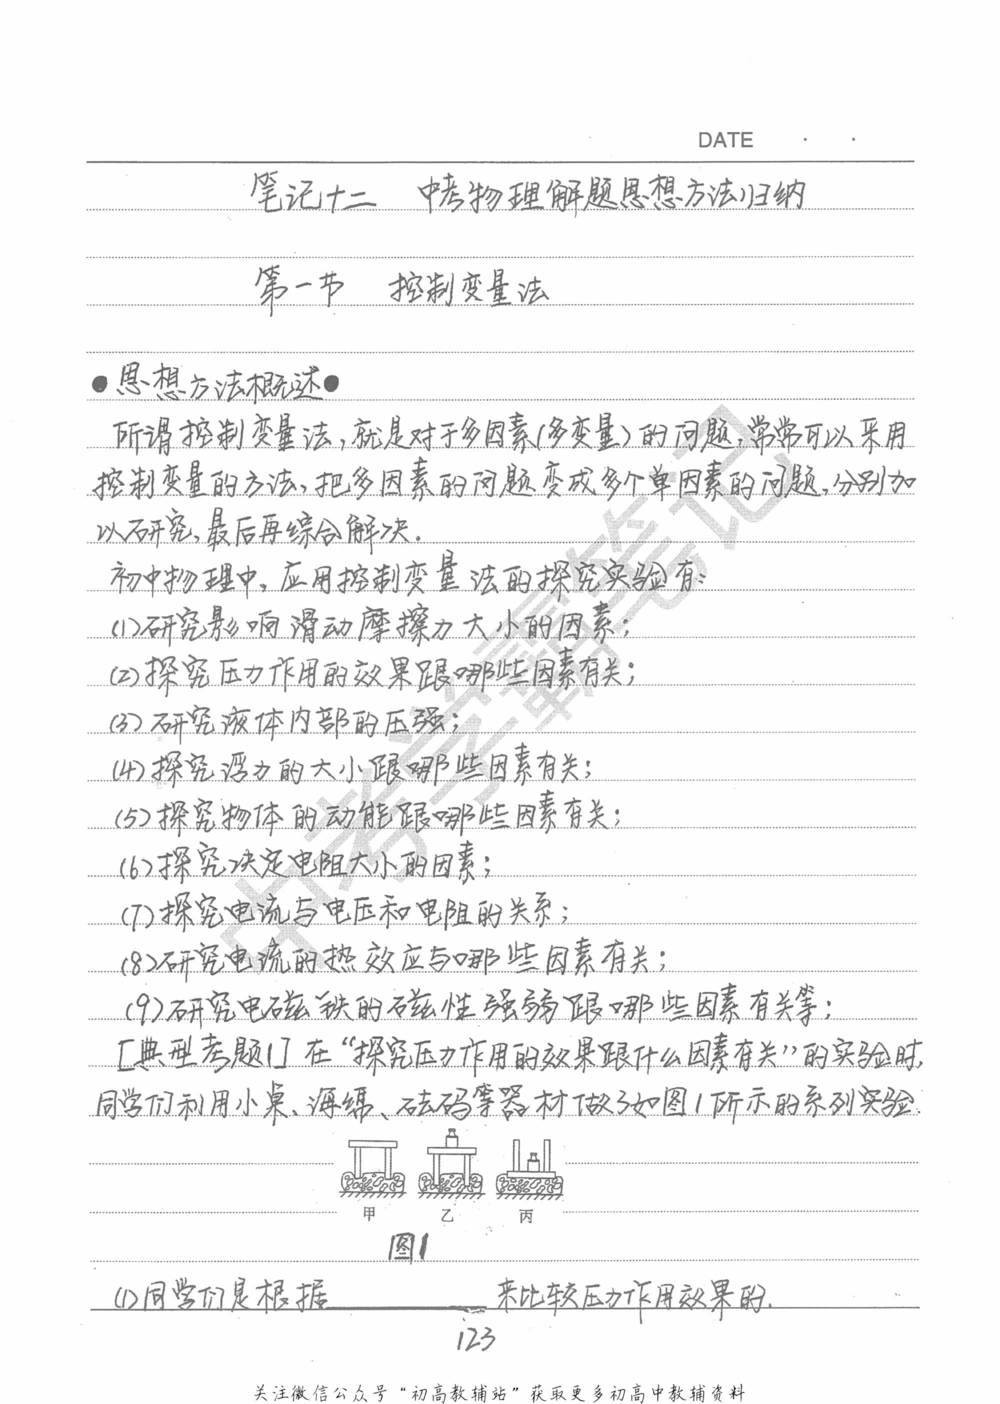 DATE · ·
笔记十二 中考物理解题思想方法归纳
第一节 控制变量法
●思想方法概述●
所谓控制变量法,就是对于多因素(多变量)的问题,常常可以采用
控制变量的方法,把多因素的问题变成多个单因素的问题,分别加
以研究,最后再综合解决.
初中物理中,应用控制变量法的探究实验有:
(1)研究影响滑动摩擦力大小的因素;
(2)探究压力作用的效果跟哪些因素有关;
(3)研究液体内部的压强;
(4)探究浮力的大小跟哪些因素有关;
(5)探究物体的动能跟哪些因素有关;
(6)探究决定电阻大小的因素;
(7)探究电流与电压和电阻的关系;
(8)研究电流的热效应与哪些因素有关;
(9)研究电磁铁的磁性强弱跟哪些因素有关等;
[典型考题1]在“探究压力作用的效果跟什么因素有关”的实验时,
同学们利用小桌、海绵、砝码等器材做了如图1所示的系列实验.
甲 乙 丙
图1
(1)同学们是根据________来比较压力作用效果的.
123
关注微信公众号“初高教辅站”获取更多初高中教辅资料
中考学霸笔记